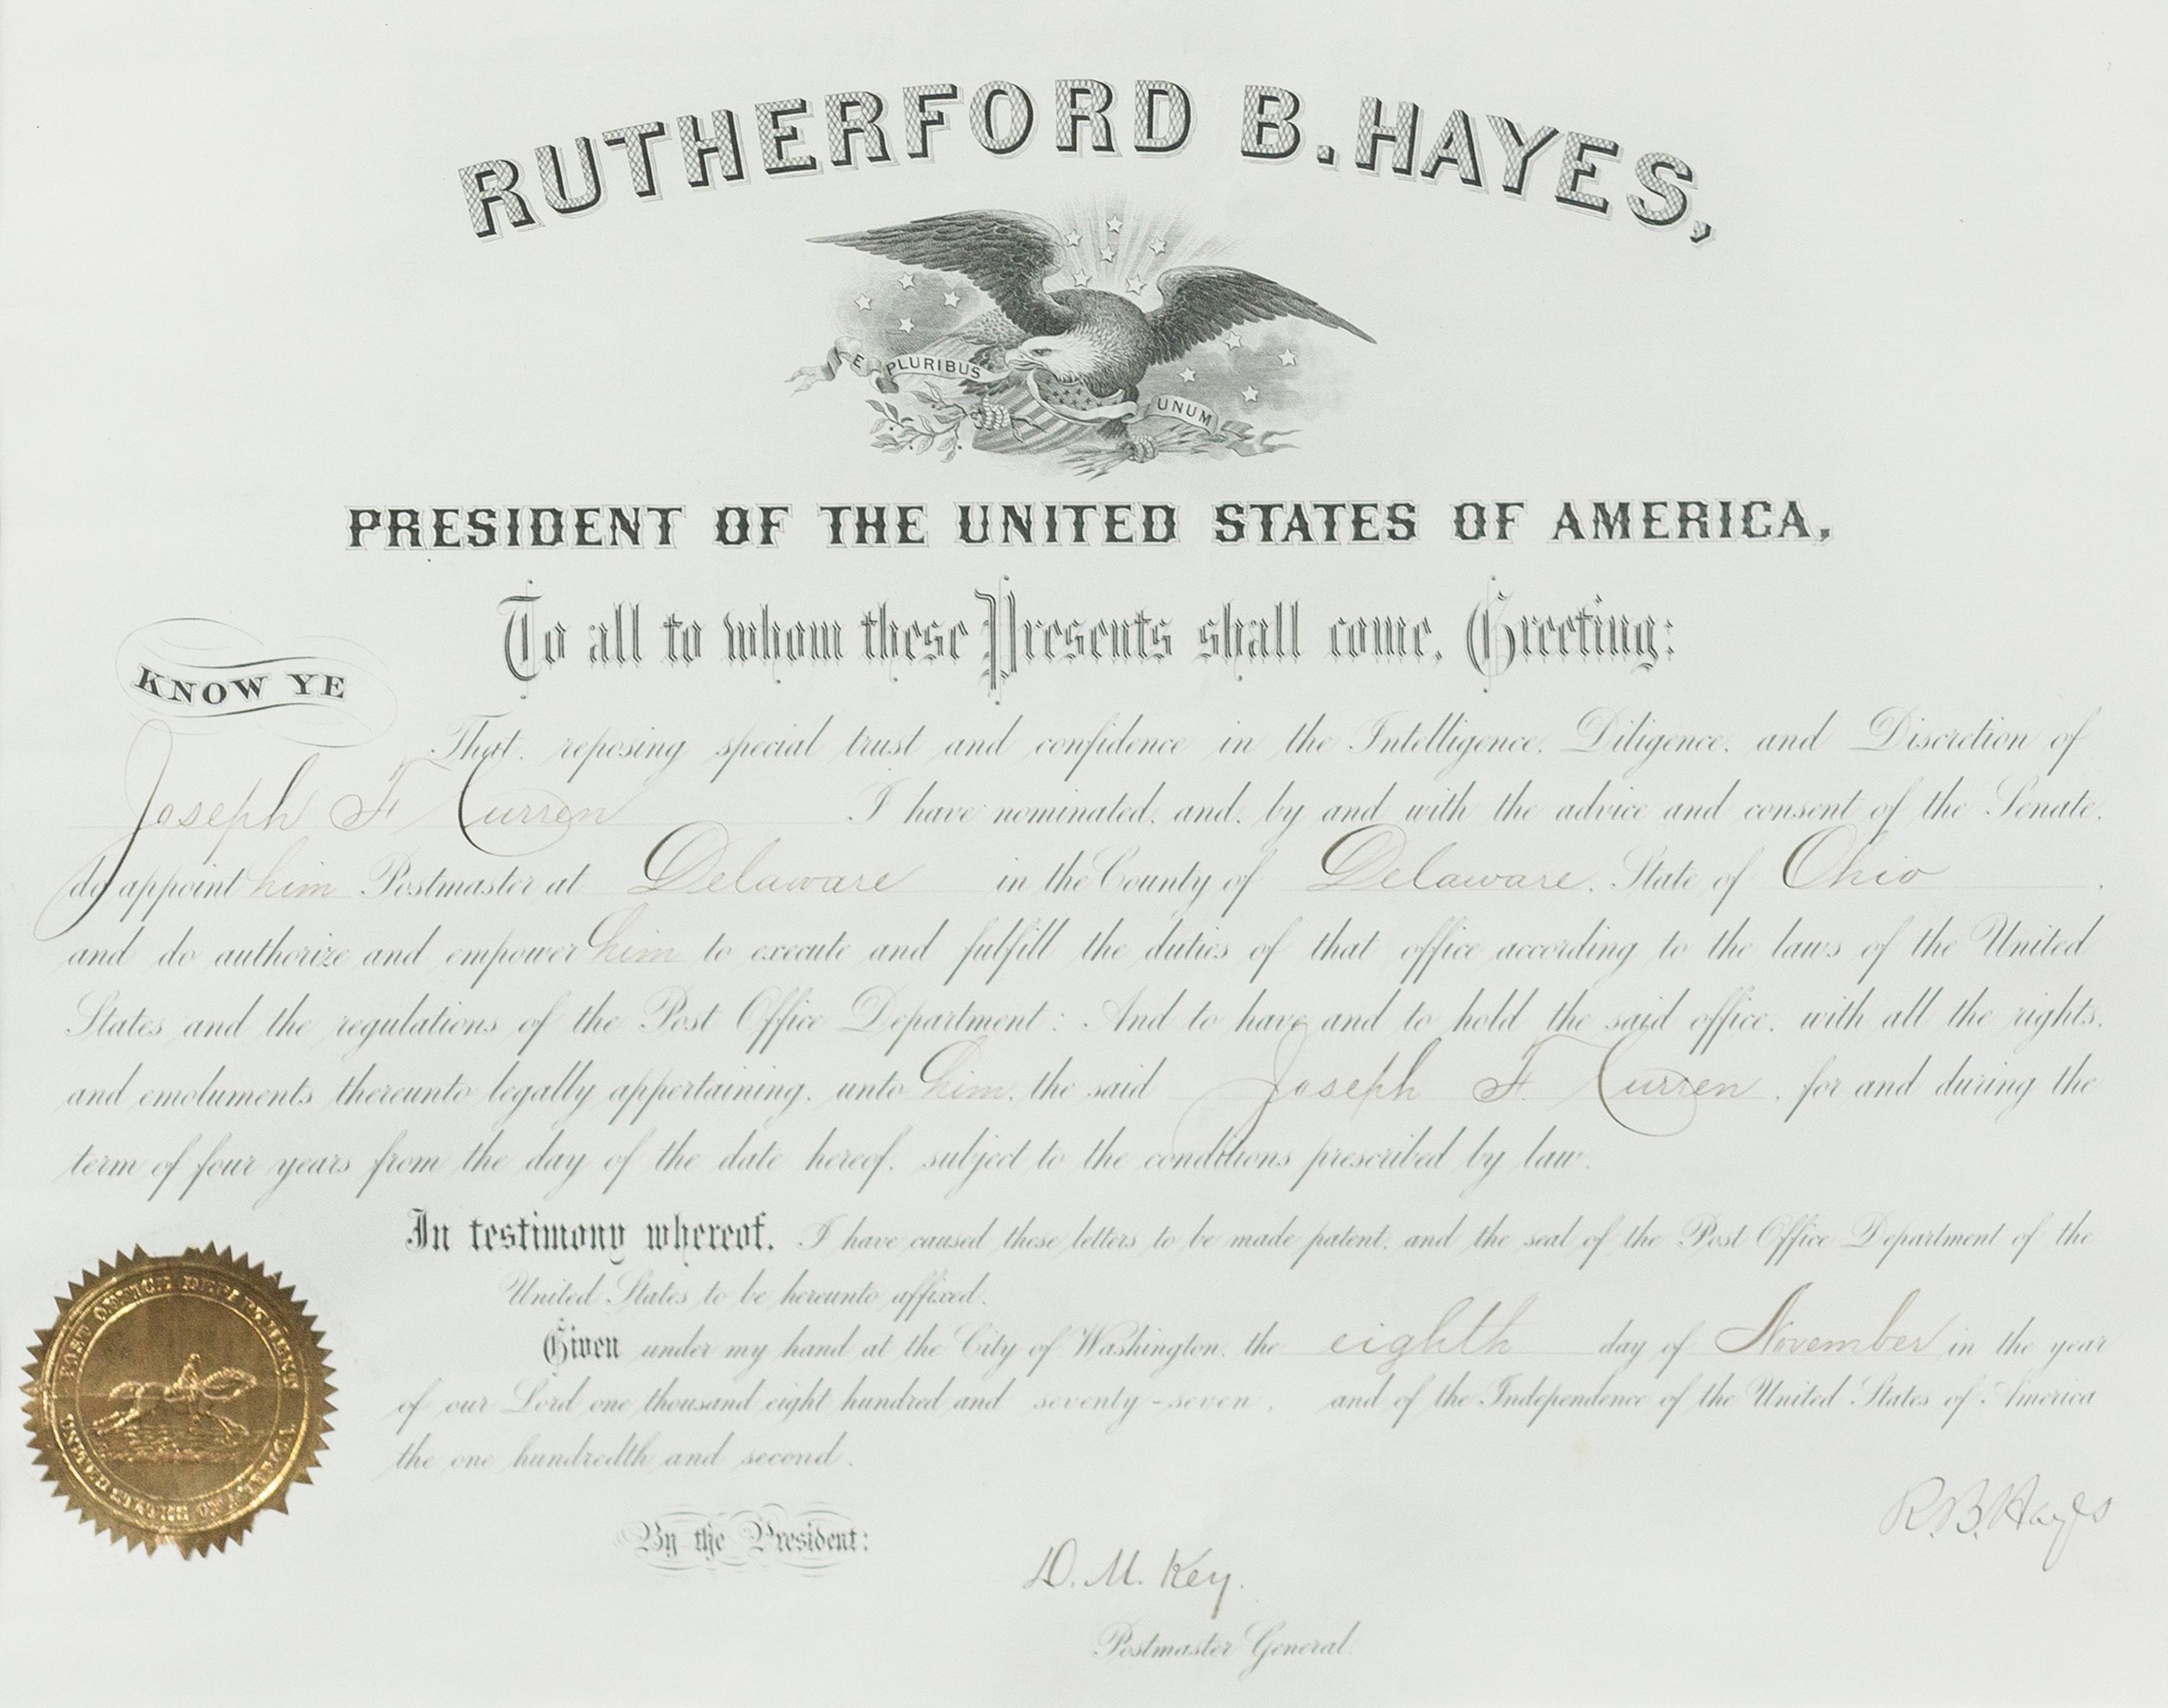 RUTHERFORD B. HAYES,
E PLURIBUS UNUM
PRESIDENT OF THE UNITED STATES OF AMERICA,
To all to whom these Presents shall come, Greeting:
KNOW YE
That, reposing special trust and confidence in the Intelligence, Diligence, and Discretion of
Joseph F. Curren I have nominated, and, by and with the advice and consent of the Senate,
do appoint him Postmaster at Delaware in the County of Delaware, State of Ohio,
and do authorize and empower him to execute and fulfill the duties of that office according to the laws of the United
States and the regulations of the Post Office Department: And to have and to hold the said office, with all the rights,
and emoluments thereunto legally appertaining, unto him, the said Joseph F. Curren, for and during the
term of four years from the day of the date hereof, subject to the conditions prescribed by law.
In testimony whereof, I have caused these letters to be made patent, and the seal of the Post Office Department of the
United States to be hereunto affixed.
Given under my hand at the City of Washington, the eighth day of November in the year
of our Lord one thousand eight hundred and seventy-seven, and of the Independence of the United States of America
the one hundredth and second.
POST OFFICE DEPARTMENT
UNITED STATES OF AMERICA
R.B. Hayes
By the President:
D. M. Key.
Postmaster General.